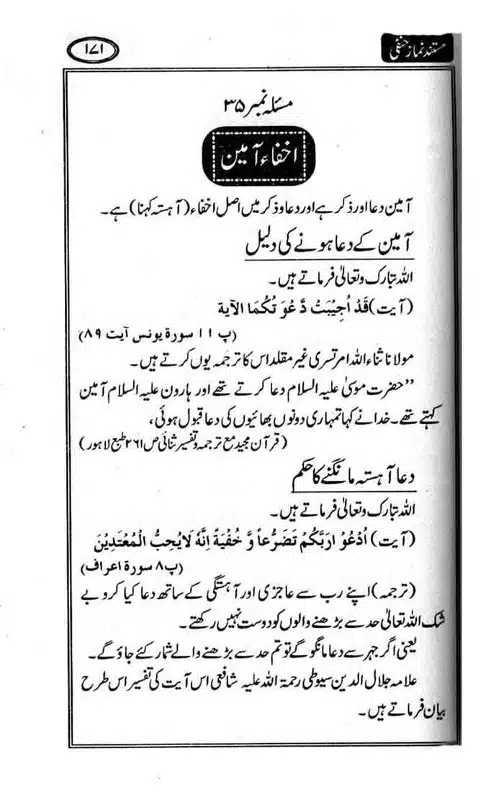 مستند نماز حنفی
۱۷۱
مسئلہ نمبر ۳۵
اخفاء آمین
آمین دعا اور ذکر ہے اور دعا و ذکر میں اصل اخفاء (آہستہ کہنا) ہے۔
آمین کے دعا ہونے کی دلیل
اللہ تبارک و تعالیٰ فرماتے ہیں۔
(آیت) قَدْ اُجِیْبَتْ دَّعْوَ تُکُمَا الآیة
(پ ۱۱ سورة یونس آیت ۸۹)
مولانا ثناء اللہ امرتسری غیر مقلد اس کا ترجمہ یوں کرتے ہیں۔
’’حضرت موسیٰ علیہ السلام دعا کرتے تھے اور ہارون علیہ السلام آمین
کہتے تھے۔ خدا نے کہا تمہاری دونوں بھائیوں کی دعا قبول ہوئی،
(قرآن مجید مع ترجمہ و تفسیر ثنائی ص ۲۶۱ طبع لاہور)
دعا آہستہ مانگنے کا حکم
اللہ تبارک و تعالیٰ فرماتے ہیں۔
(آیت) اُدْعُوْ ارَبَّکُمْ تَضَرُّعاً وَّ خُفْیَةً اِنَّهٗ لَایُحِبُّ الْمُعْتَدِیْنَ
(پ ۸ سورة اعراف)
(ترجمہ) اپنے رب سے عاجزی اور آہستگی کے ساتھ دعا کیا کرو بے
شک اللہ تعالیٰ حد سے بڑھنے والوں کو دوست نہیں رکھتے۔
یعنی اگر جہر سے دعا مانگو گے تو تم حد سے بڑھنے والے شمار کئے جاؤ گے۔
علامہ جلال الدین سیوطی رحمۃ اللہ علیہ شافعی اس آیت کی تفسیر اس طرح
بیان فرماتے ہیں۔